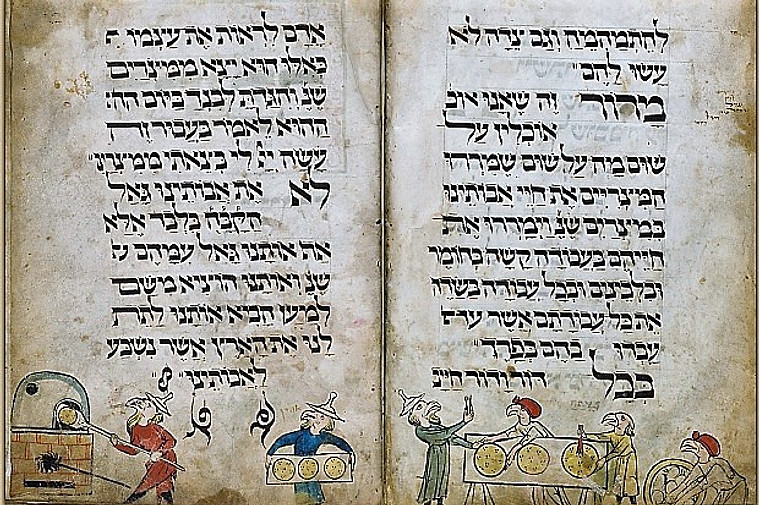 להתמהמה וגם צדה לא
עשו להם
מרור זה שאנו אוכ
אוכלין על
שום מה על שום שמררו
המצריים את חיי אבותינו
במצרים שנ' וימררו את
חייהם בעבודה קשה בחומר
ובלבינים ובכל עבודה בשדה
את כל עבודתם אשר
עבדו בהם בפרך
בכל דור ודור חייב
אדם לראות את עצמו כ
כאלו הוא יצא ממצרים
שנ' והגדת לבנך ביום הה
ההוא לאמר בעבור זה
עשה יי לי בצאתי ממצרים
לא את אבותינו גאל
הקב"ה בלבד אלא
את אותנו גאל עמהם ש
שנ' ואותנו הוציא משם
למען הביא אותנו לתת
לנו את הארץ אשר נשבע
לאבותינו